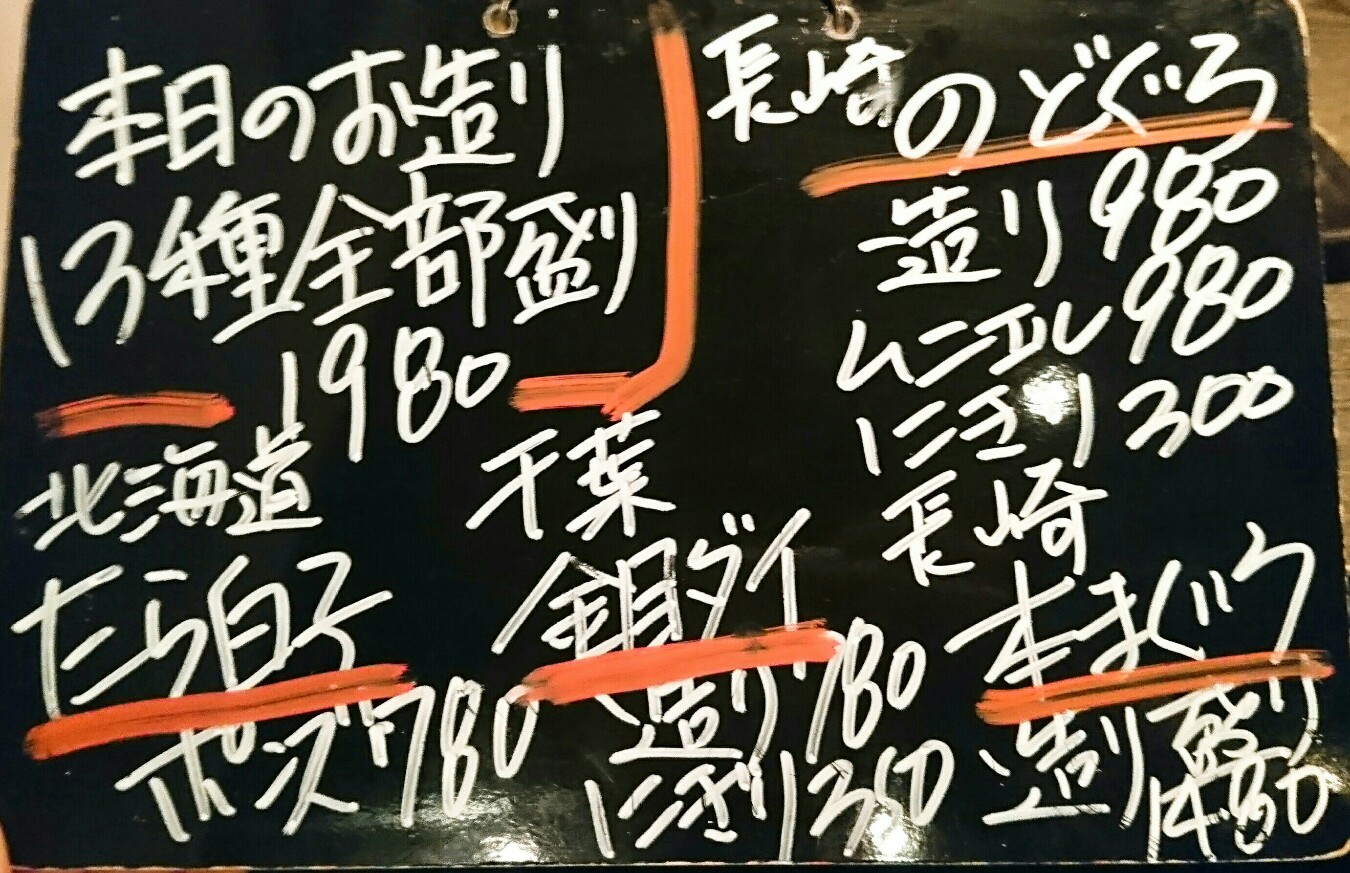 本日のお造り
13種全部盛り
1980
長崎のどぐろ
造り980
ムニエル980
にぎり300
北海道
たら白子
ポンズ780
千葉
金目ダイ
造り780
にぎり350
長崎
本まぐろ
造り盛り
1480